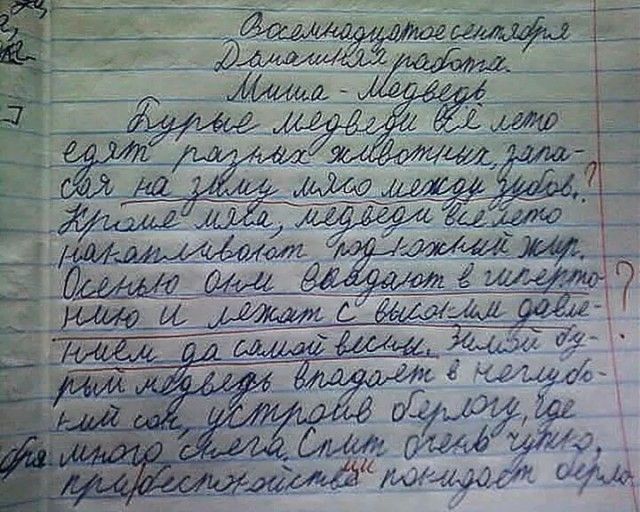 Восемнадцатое сентября
Домашняя работа.
Миша - Медведь
Бурые медведи всё лето
едят разных животных, запа-
сая на зиму мясо между зубов. ?
Кроме мяса, медведи всё лето
накапливают подкожный жир.
Осенью они впадают в гиперто-
нию и лежат с высоким давле- ?
нием да самой весны. Зимой бу-
рый медведь впадает в неглубо-
кий сон, устроив берлогу, где
много снега. Спит очень чутко,
при беспокойстве покидает берло-